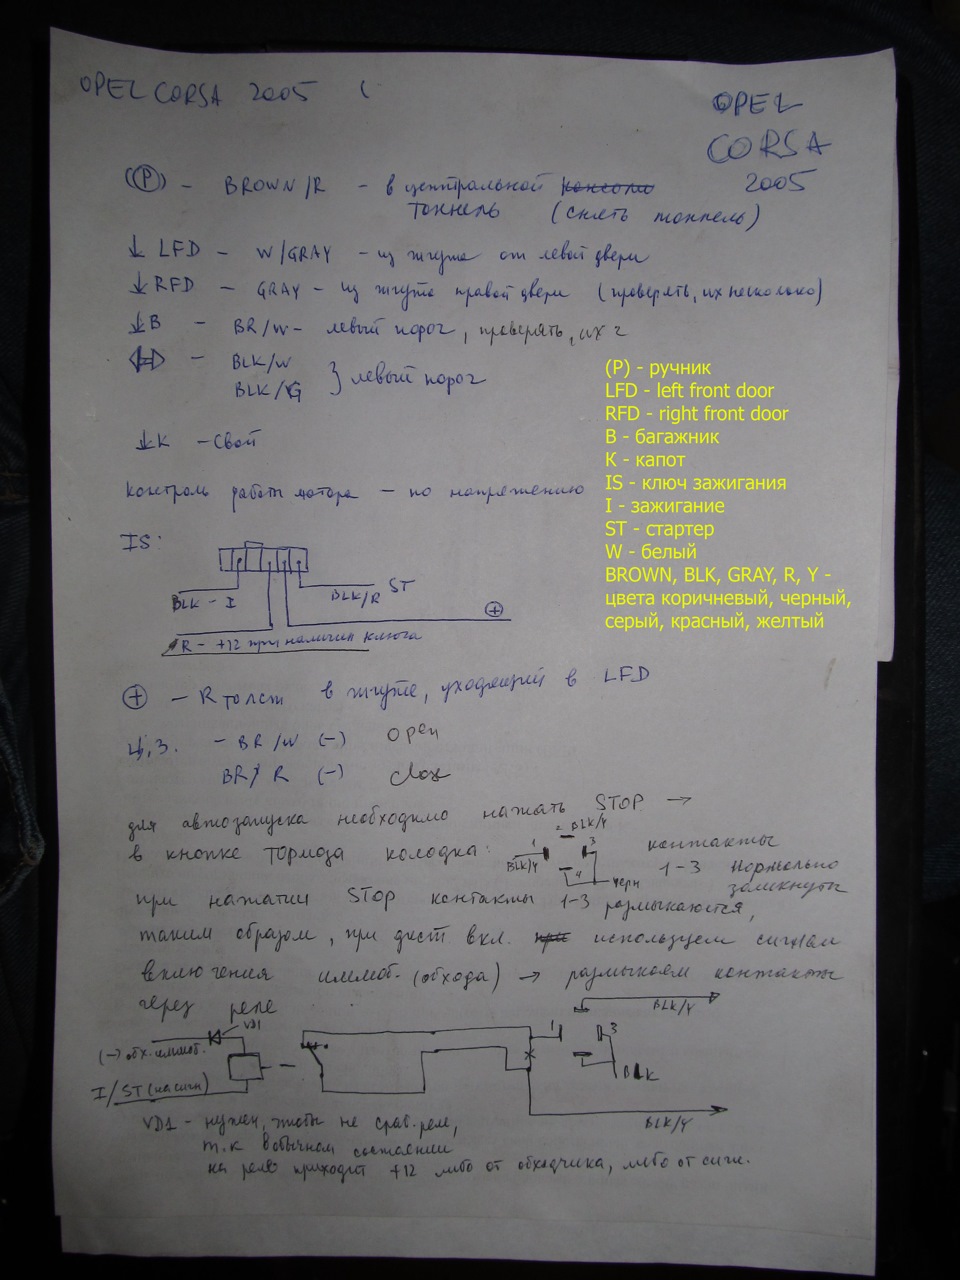 OPEL CORSA 2005 (
OPEL
CORSA
2005
(P) - BROWN/R - в центральной консоли
тоннель (снять тоннель)
↓ LFD - W/GRAY - из жгута от левой двери
↓ RFD - GRAY - из жгута правой двери (проверять, их несколько)
↓ B - BR/W - левый порог, проверять, их 2
BLK/W
BLK/G } левый порог
↓ K - свой
контроль работы мотора - по напряжению
(P) - ручник
LFD - left front door
RFD - right front door
B - багажник
K - капот
IS - ключ зажигания
I - зажигание
ST - стартер
W - белый
BROWN, BLK, GRAY, R, Y -
цвета коричневый, черный,
серый, красный, желтый
IS:
BLK - I
BLK/R ST
+
R - +12 при наличии ключа
+ - R толст в жгуте, уходящий в LFD
Ц.З. - BR/W (-) open
BR/R (-) close
для автозапуска необходимо нажать STOP →
в кнопке тормоза колодка:
2 BLK/Y
1 3
BLK/Y
4 черн
контакты
1-3 нормально
замкнуты
при нажатии STOP контакты 1-3 размыкаются,
таким образом, при дист вкл. при используем сигнал
включения иммоб. (обхода) → размыкаем контакты
через реле
VD1
(-) обх. иммоб.
I/ST (на сигн)
BLK/Y
1 3
BLK
BLK/Y
VD1 - нужен, чтобы не сраб. реле,
т.к в обычном состоянии
на реле приходит +12 либо от обходчика, либо от сигн.